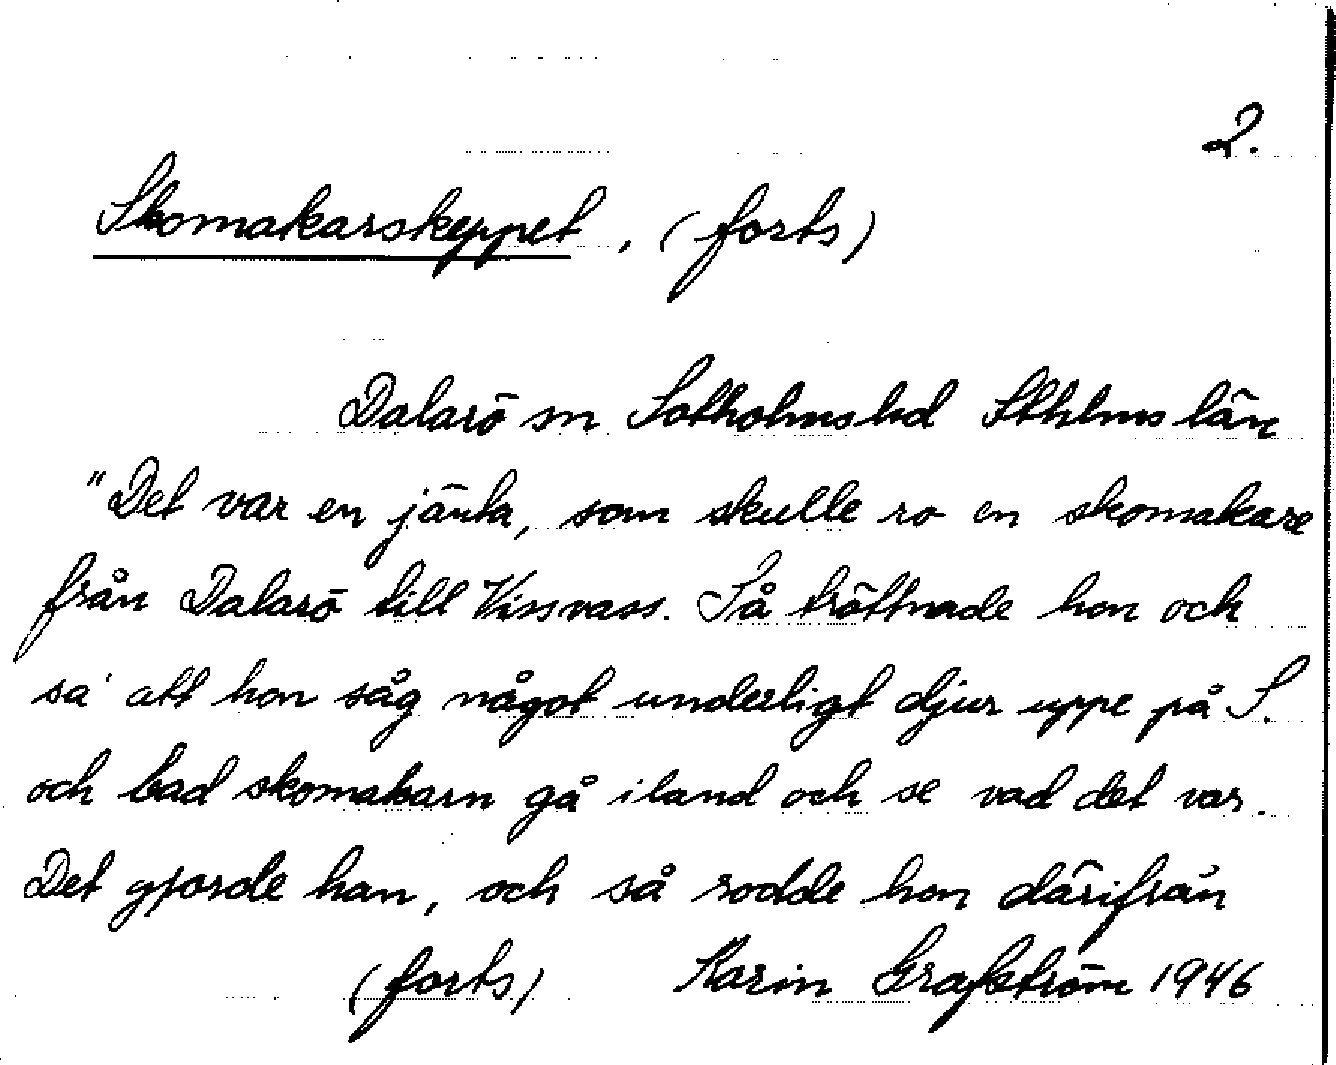 2.
Skomakarskeppet, (forts)
Dalarö sn Sotholmshd Sthlms län
"Det var en jänta, som skulle ro en skomakare
från Dalarö till Vissvass. Så tröttnade hon och
sa' att hon såg något underligt djur uppe på S.
och bad skomakarn gå iland och se vad det var.
Det gjorde han, och så rodde hon därifrån
(forts) Karin Grafström 1946